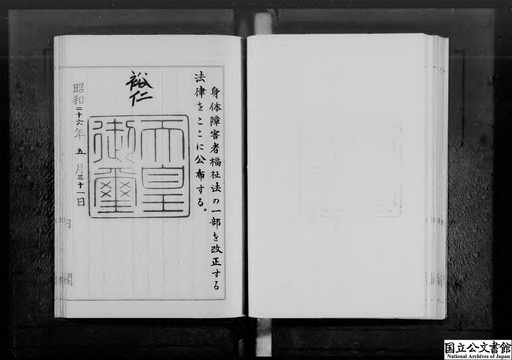 身体障害者福祉法の一部を改正する
法律をここに公布する。
裕仁
天皇
御璽
昭和二十六年五月三十一日
国立公文書館
National Archives of Japan